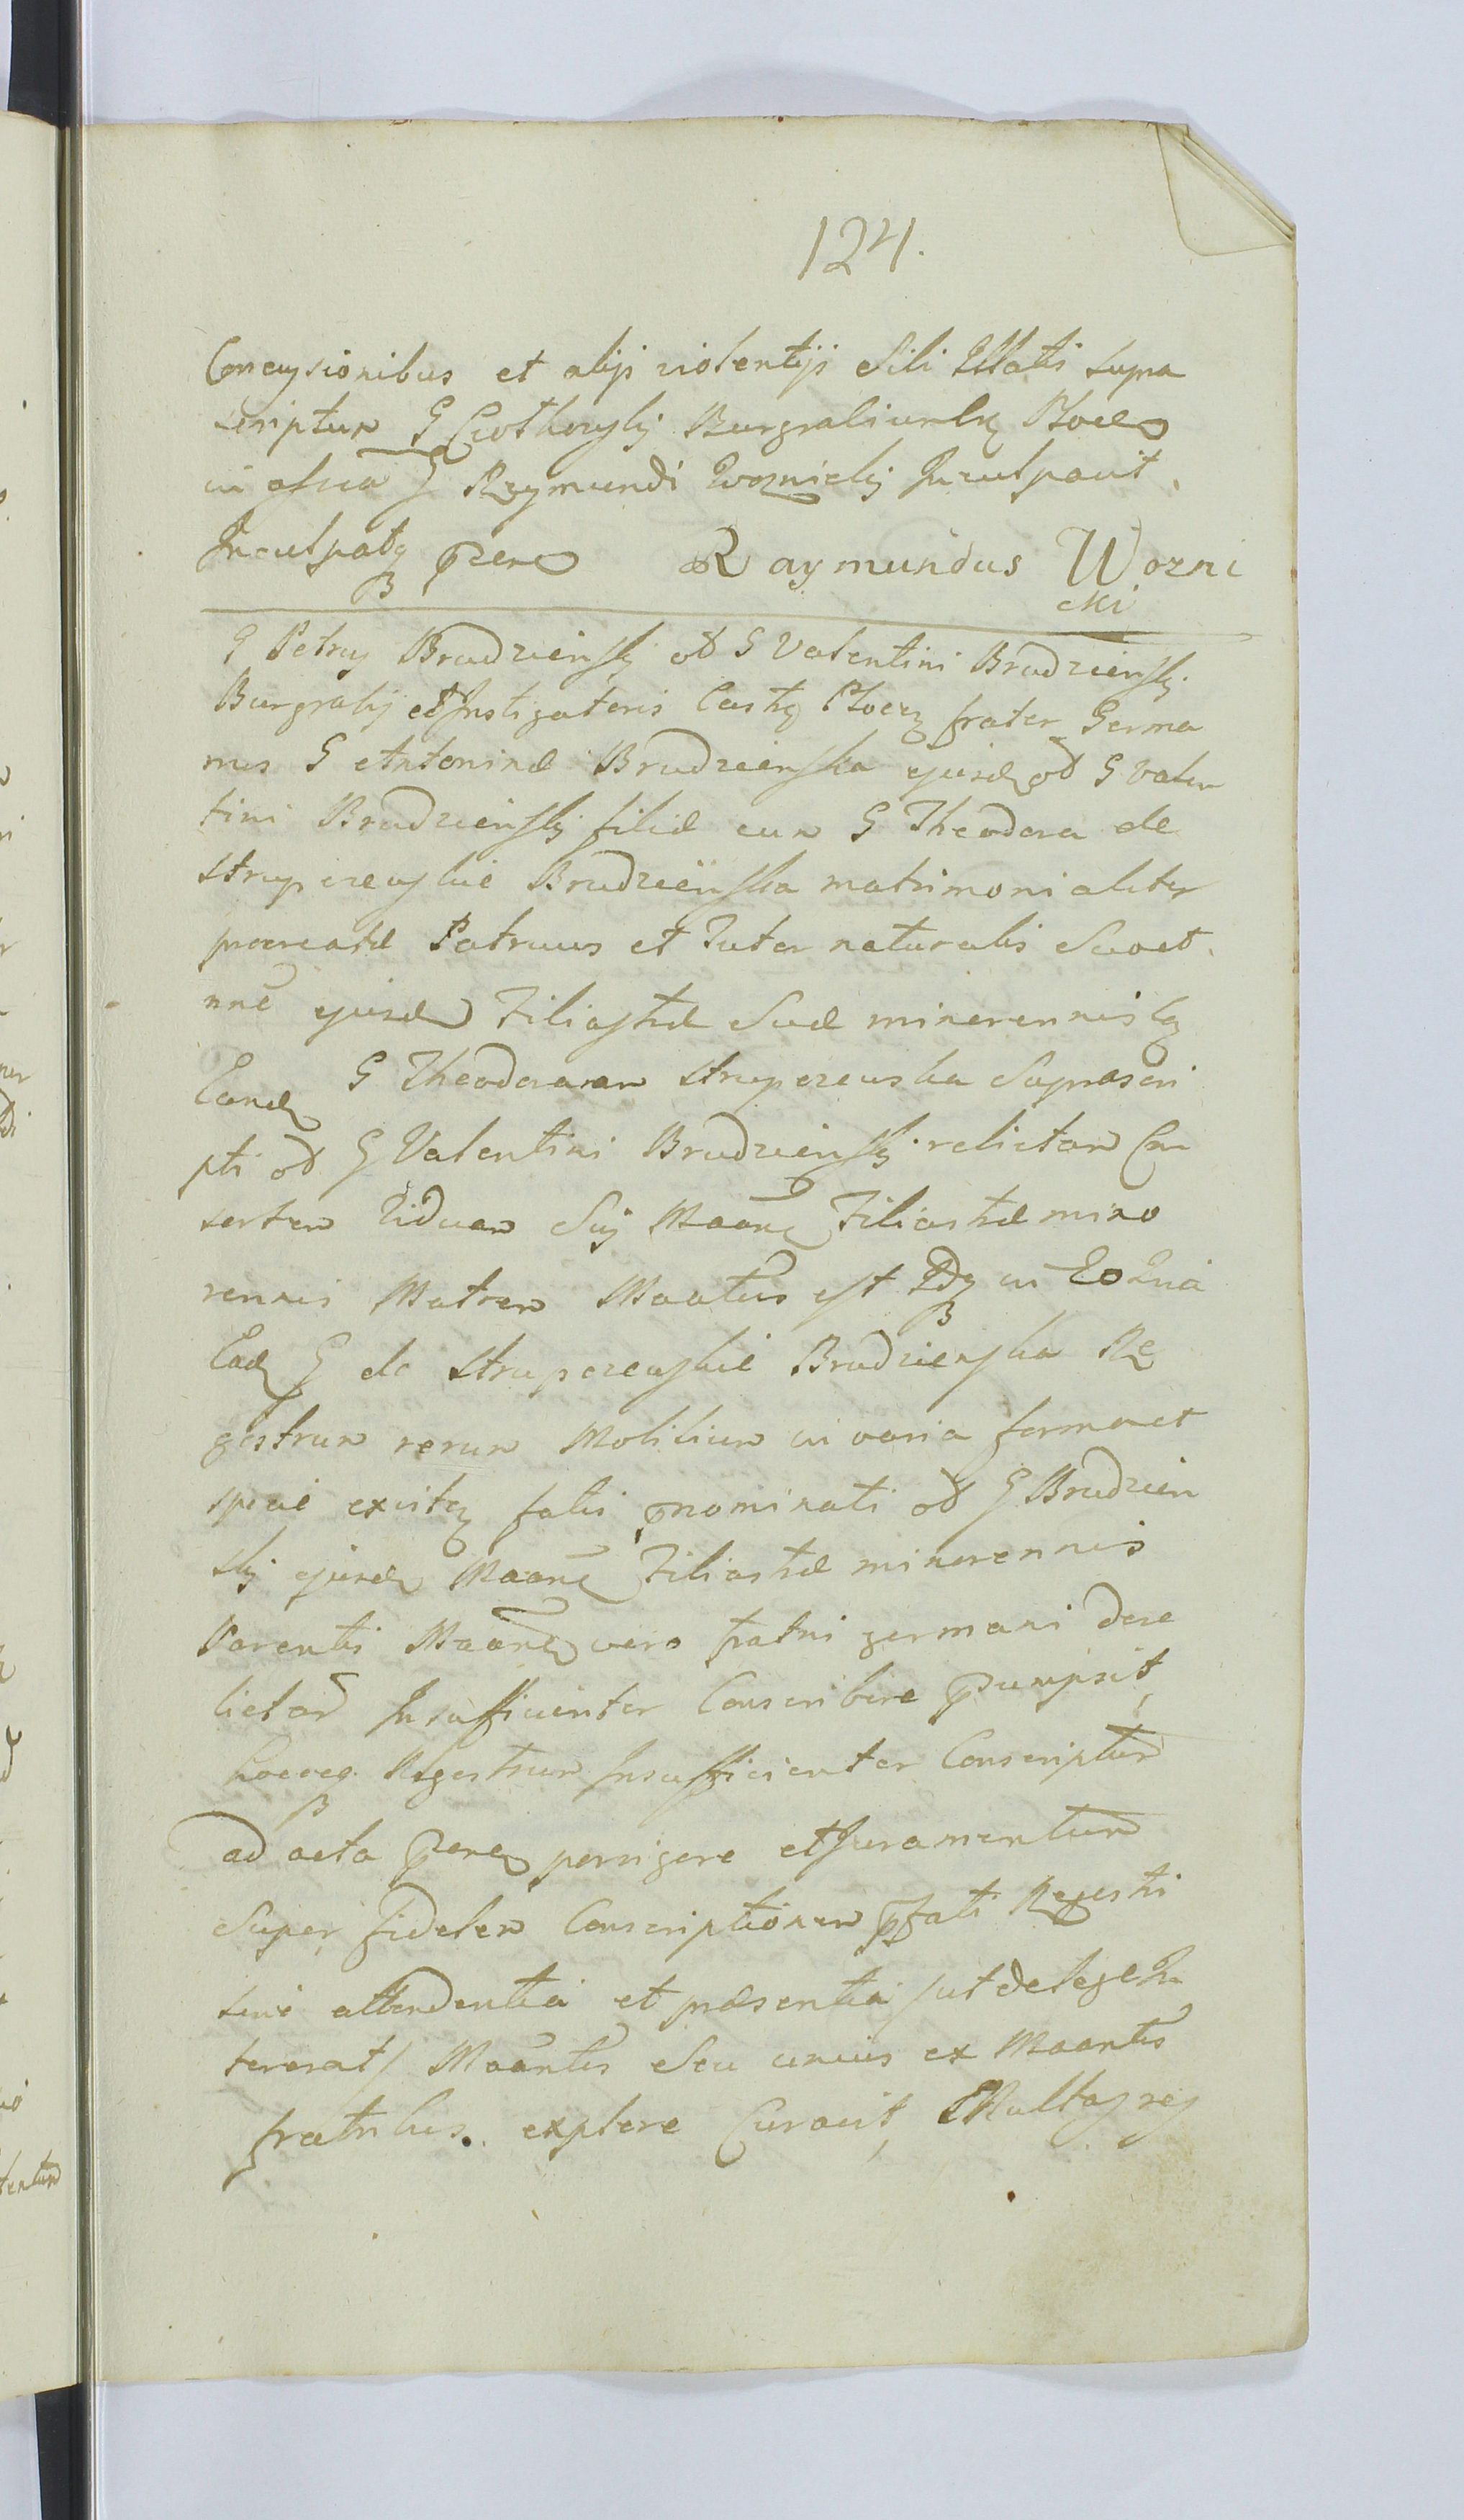 124.
Concussionibus et alijs violentijs Sibi Illatis supra
scriptum G Ciothowskij Burgrabium
in assa G Raymundi Woznickij Inculpavit.
Inculpatq Raymundus Wozni
cki
G Petrus Brudzienskij od G Valentini Brudzienskij
Burgrabij et Instigatoris Castr Plocen frater Germa
nus G Antoninæ Brudzienska ejusd od G Valen
tini Brudzienskij filiæ cum G Theodora de
Strupczewskie Brudzienska matrimonialiter
procreatæ Patruus et Tutor naturalis Suo et
nne ejusd Filiastræ Suæ minorennis
Eand G Theodoram Strupczewska Suprascri
pti od G Valentini Brudzienskij relictam Con
sortem Viduam Sui Filiastræ mino
rennis Matrem est in Eo Quia
Ead G de Strupczewskie Brudzienska Re
gestrum rerum Mobilium in varia forma et
specie exvitq fatis pnominati od G Brudzien
skij ejusd Filiastræ minorennis
Parentis vero fratris germani dere
lictar Insufficienter Conscribere
hocceq Regestrum Insufficienter Conscriptum
ad acta porrigere et Juramentum
Super fidelem Conscriptionem pfati Regestri
sine attendentia et præsentia /ut de lege In
tererat/ Seu unius ex
fratribus. explere Curavit, Multas res